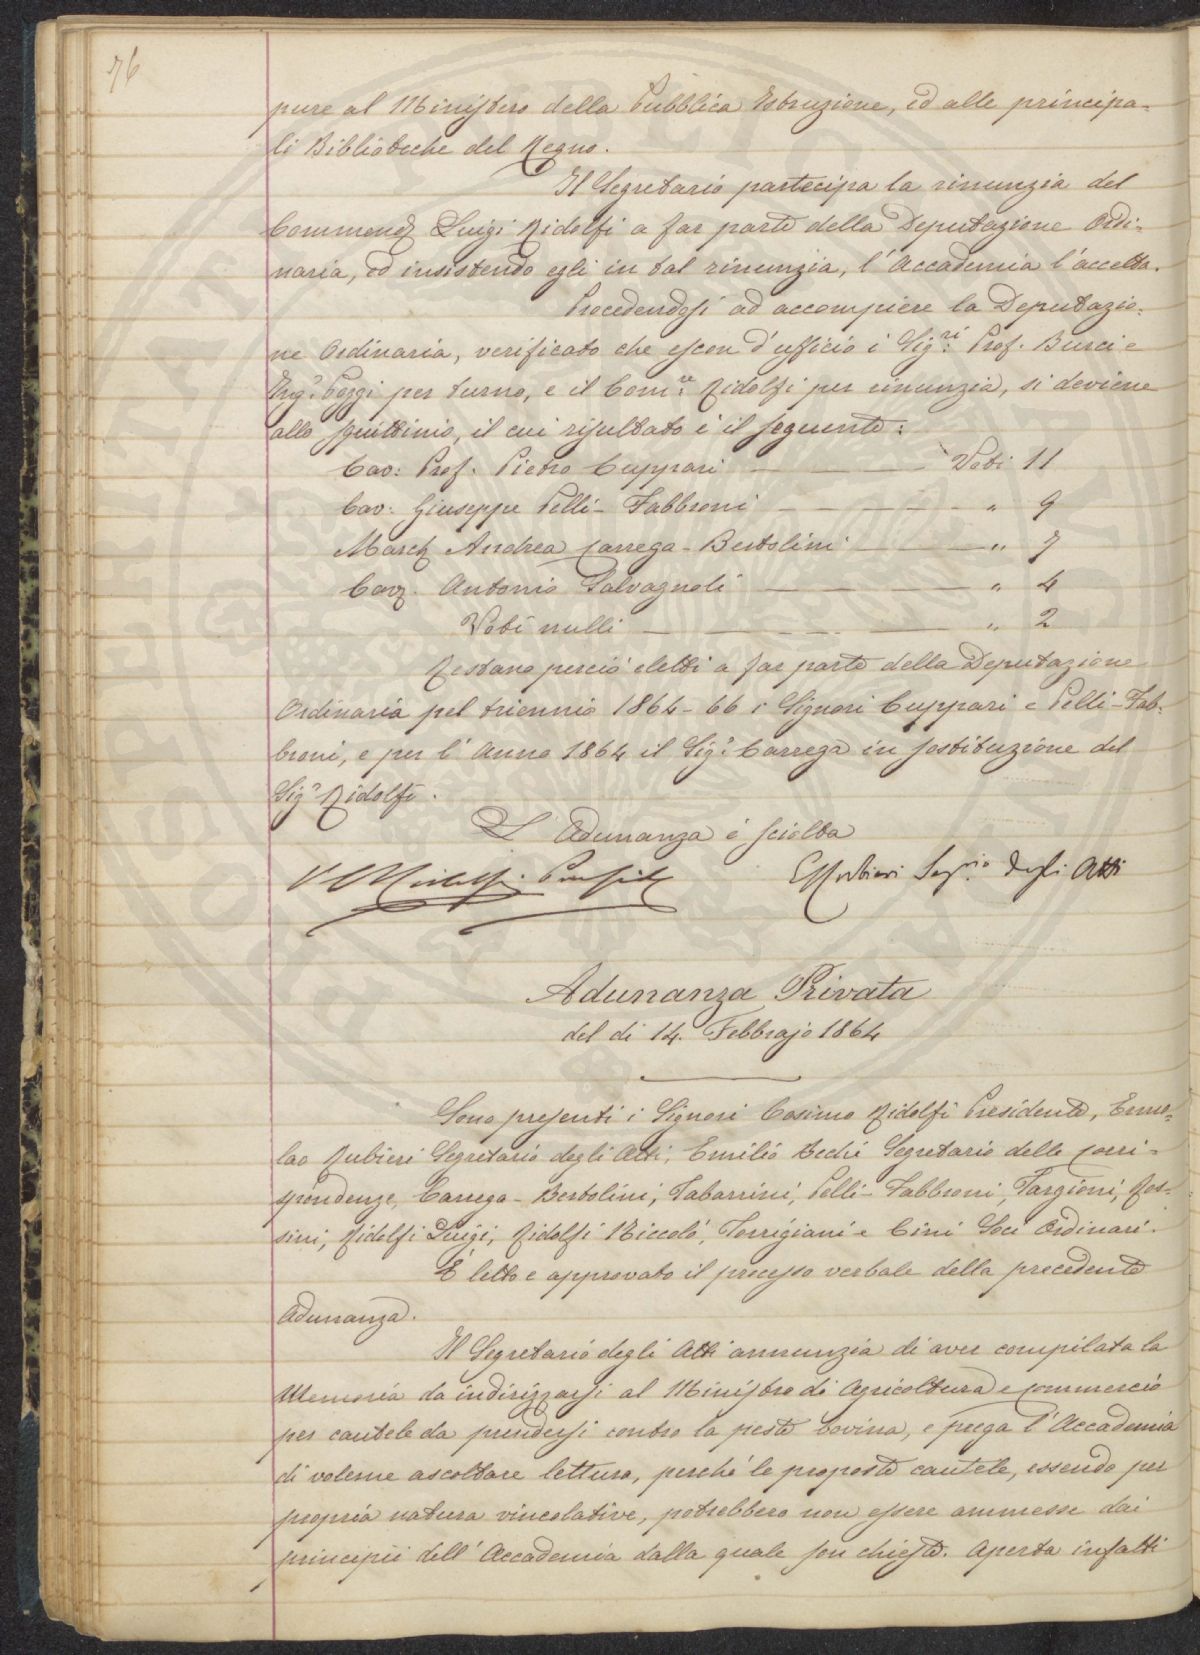 76
pure al Ministero della Pubblica Istruzione, ed alle principa-
li Biblioteche del Regno.
Il Segretario partecipa la rinunzia del
Commend. Luigi Ridolfi a far parte della Deputazione Ordi-
naria, ed insistendo egli in tal rinunzia, l'Accademia l'accetta.
Procedendosi ad accompiere la Deputazio-
ne Ordinaria, verificato che escon d'ufficio i Sig.ri Prof. Burci e
Ing.e Poggi per turno, e il Com.re Ridolfi per rinunzia, si deviene
allo squittinio, il cui risultato è il seguente:
Cav: Prof. Pietro Cuppari — Voti 11
Cav: Giuseppe Pelli-Fabbroni — " 9
March. Andrea Carrega-Bertolini — " 7
Cav. Antonio Salvagnoli — " 4
Voti nulli — " 2
Restano perciò eletti a far parte della Deputazione
Ordinaria pel triennio 1864-66 i Signori Cuppari e Pelli-Fab-
broni, e per l'Anno 1864 il Sig.e Carrega in sostituzione del
Sig.e Ridolfi.
L'Adunanza è sciolta
Ridolfi
E Rubieri Seg.rio degli Atti
Adunanza Privata
del dì 14. Febbrajo 1864
Sono presenti i Signori Cosimo Ridolfi Presidente, Ermo-
lao Rubieri Segretario degli Atti, Emilio Bechi Segretario delle corri-
spondenze, Carrega-Bertolini, Tabarrini, Pelli-Fabbroni, Targioni, Ros-
sini, Ridolfi Luigi, Ridolfi Niccolò, Torrigiani e Cini Soci Ordinari.
È letto e approvato il processo verbale della precedente
adunanza.
Il Segretario degli Atti annunzia di aver compilata la
Memoria da indirizzarsi al Ministro di Agricoltura e commercio
per cautele da prendersi contro la peste bovina, e prega l'Accademia
di volerne ascoltare lettura, perché le proposte cautele, essendo per
propria natura vincolative, potrebbero non essere ammesse dai
principii dell'Accademia dalla quale son chieste. Aperta infatti